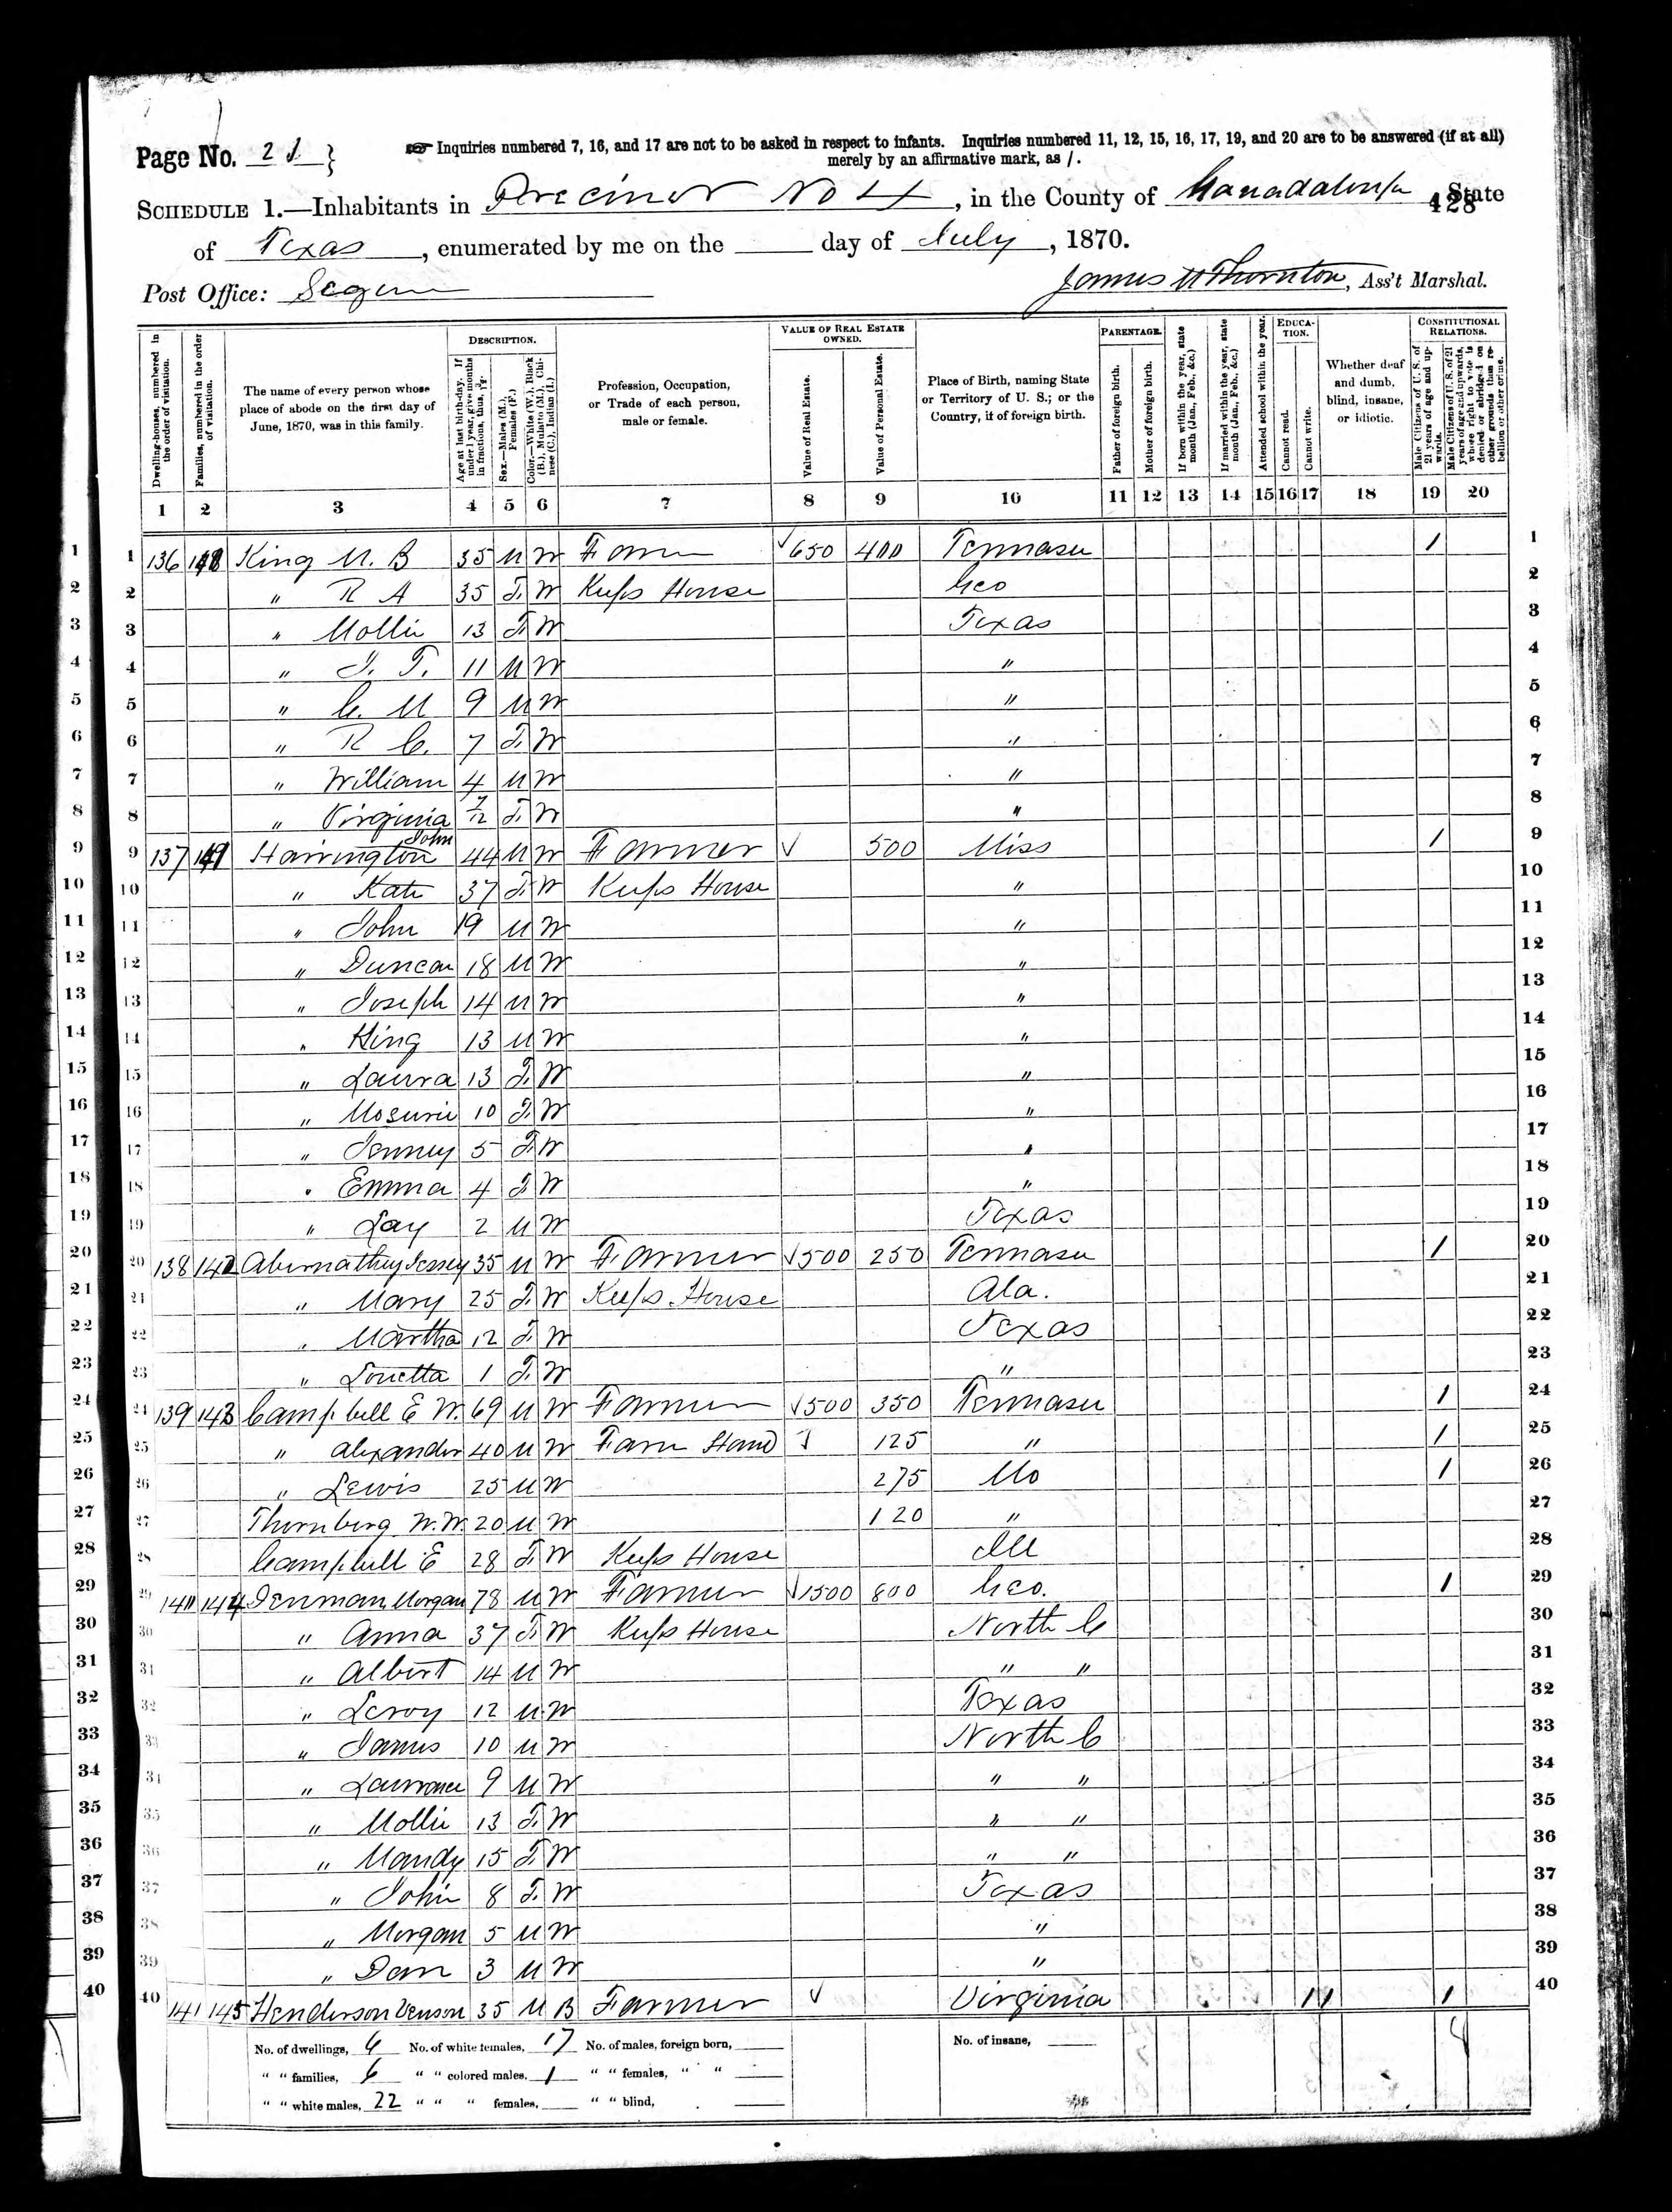 Page No. 21 }
Inquiries numbered 7, 16, and 17 are not to be asked in respect to infants. Inquiries numbered 11, 12, 15, 16, 17, 19, and 20 are to be answered (if at all)
merely by an affirmative mark, as /.
SCHEDULE 1.—Inhabitants in Precinct No 4, in the County of Guadaloupe State
428
of Texas, enumerated by me on the day of July, 1870.
Post Office: Seguin
James M Thornton, Ass't Marshal.
Dwelling-houses, numbered in the order of visitation.
Families, numbered in the order of visitation.
The name of every person whose place of abode on the first day of June, 1870, was in this family.
DESCRIPTION.
Age at last birth-day. If under 1 year, give months in fractions, thus,
Sex.—Males (M.), Females (F.)
Color.—White (W.), Black (B.), Mulatto (M.), Chinese (C.), Indian (I.)
Profession, Occupation, or Trade of each person, male or female.
VALUE OF REAL ESTATE OWNED.
Value of Real Estate.
Value of Personal Estate.
Place of Birth, naming State or Territory of U. S.; or the Country, if of foreign birth.
PARENTAGE.
Father of foreign birth.
Mother of foreign birth.
If born within the year, state month (Jan., Feb., &c.)
If married within the year, state month (Jan., Feb., &c.)
Attended school within the year.
EDUCATION.
Cannot read.
Cannot write.
Whether deaf and dumb, blind, insane, or idiotic.
CONSTITUTIONAL RELATIONS.
Male Citizens of U. S. of 21 years of age and upwards.
Male Citizens of U. S. of 21 years of age and upwards, whose right to vote is denied or abridged on other grounds than rebellion or other crime.
1 2 3 4 5 6 7 8 9 10 11 12 13 14 15 16 17 18 19 20
1 136 King M. B 35 M W Farmer 650 400 Tennasee / 1
2 " R A 35 F W Keeps House Geo 2
3 " Mollie 13 F W Texas 3
4 " J. T. 11 M W " 4
5 " C. M 9 M W " 5
6 " R C. 7 F W " 6
7 " William 4 M W " 7
8 " Virginia 7/12 F W " 8
9 137 Harrington John 44 M W Farmer 500 Miss / 9
10 " Kate 37 F W Keeps House " 10
11 " John 19 M W " 11
12 " Duncan 18 M W " 12
13 " Joseph 14 M W " 13
14 " King 13 M W " 14
15 " Laura 13 F W " 15
16 " 10 F W " 16
17 " Jenney 5 F W " 17
18 " Emma 4 F W " 18
19 " Lay 2 M W Texas 19
20 138 142 Abernathey Jessey 35 M W Farmer 500 250 Tennasee / 20
21 " Mary 25 F W Keeps House Ala. 21
22 " Martha 12 F W Texas 22
23 " Louetta 1 F W " 23
24 139 143 Campbell E W. 69 M W Farmer 500 350 Tennasee / 24
25 " Alexander 40 M W Farm Hand 125 " / 25
26 " Lewis 25 M W 275 Mo / 26
27 Thornberg W. W. 20 M W 120 " 27
28 Campbell E 28 F W Keeps House Ill 28
29 140 144 Denman Morgan 78 M W Farmer 1500 800 Geo. / 29
30 " Anna 37 F W Keeps House North C 30
31 " Albert 14 M W " " 31
32 " Leroy 12 M W Texas 32
33 " James 10 M W North C 33
34 " Laurance 9 M W " " 34
35 " Mollie 13 F W " " 35
36 " Mandy 15 F W " " 36
37 " John 8 F W Texas 37
38 " Morgan 5 M W " 38
39 " Dan 3 M W " 39
40 141 145 Henderson Venson 35 M B Farmer Virginia / / / 40
No. of dwellings, 6 No. of white females, 17 No. of males, foreign born, No. of insane,
" " families, 6 " " colored males, 1 " " females, " "
" " white males, 22 " " " females, " " blind,